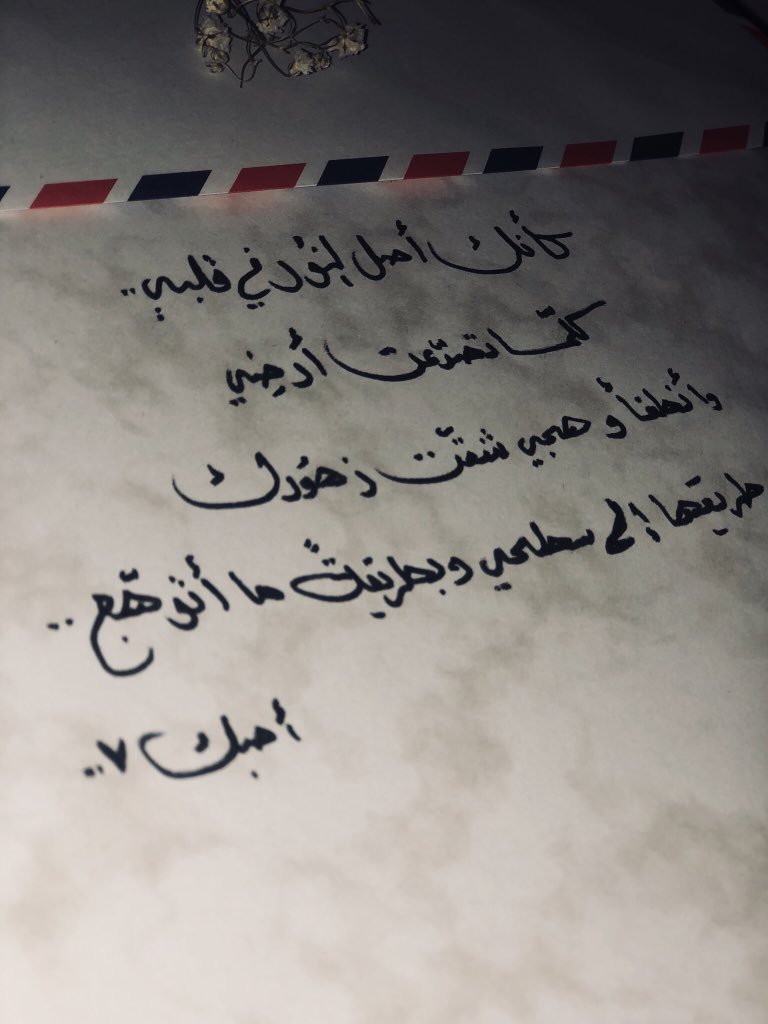 كأنك أصل النؤر في قلبي..
كلّما تصدّعت أرضِي
وأنطفأ وهجي شقّت زهؤرك
طريقها إلى سطحي وبطريقةً ما أتوهّج ..
أحبك ٧..